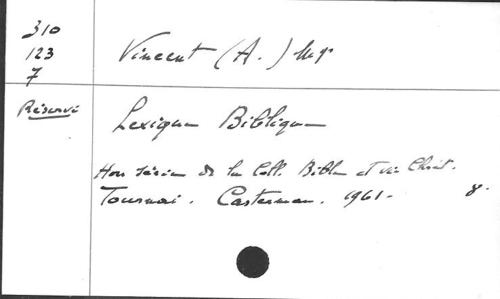 310
123
7
Vincent (A.) Mgr
Réservé
Lexique Biblique
Hors série de la Coll. Bible et vie Chrét.
Tournai. Casterman. 1961. 8°